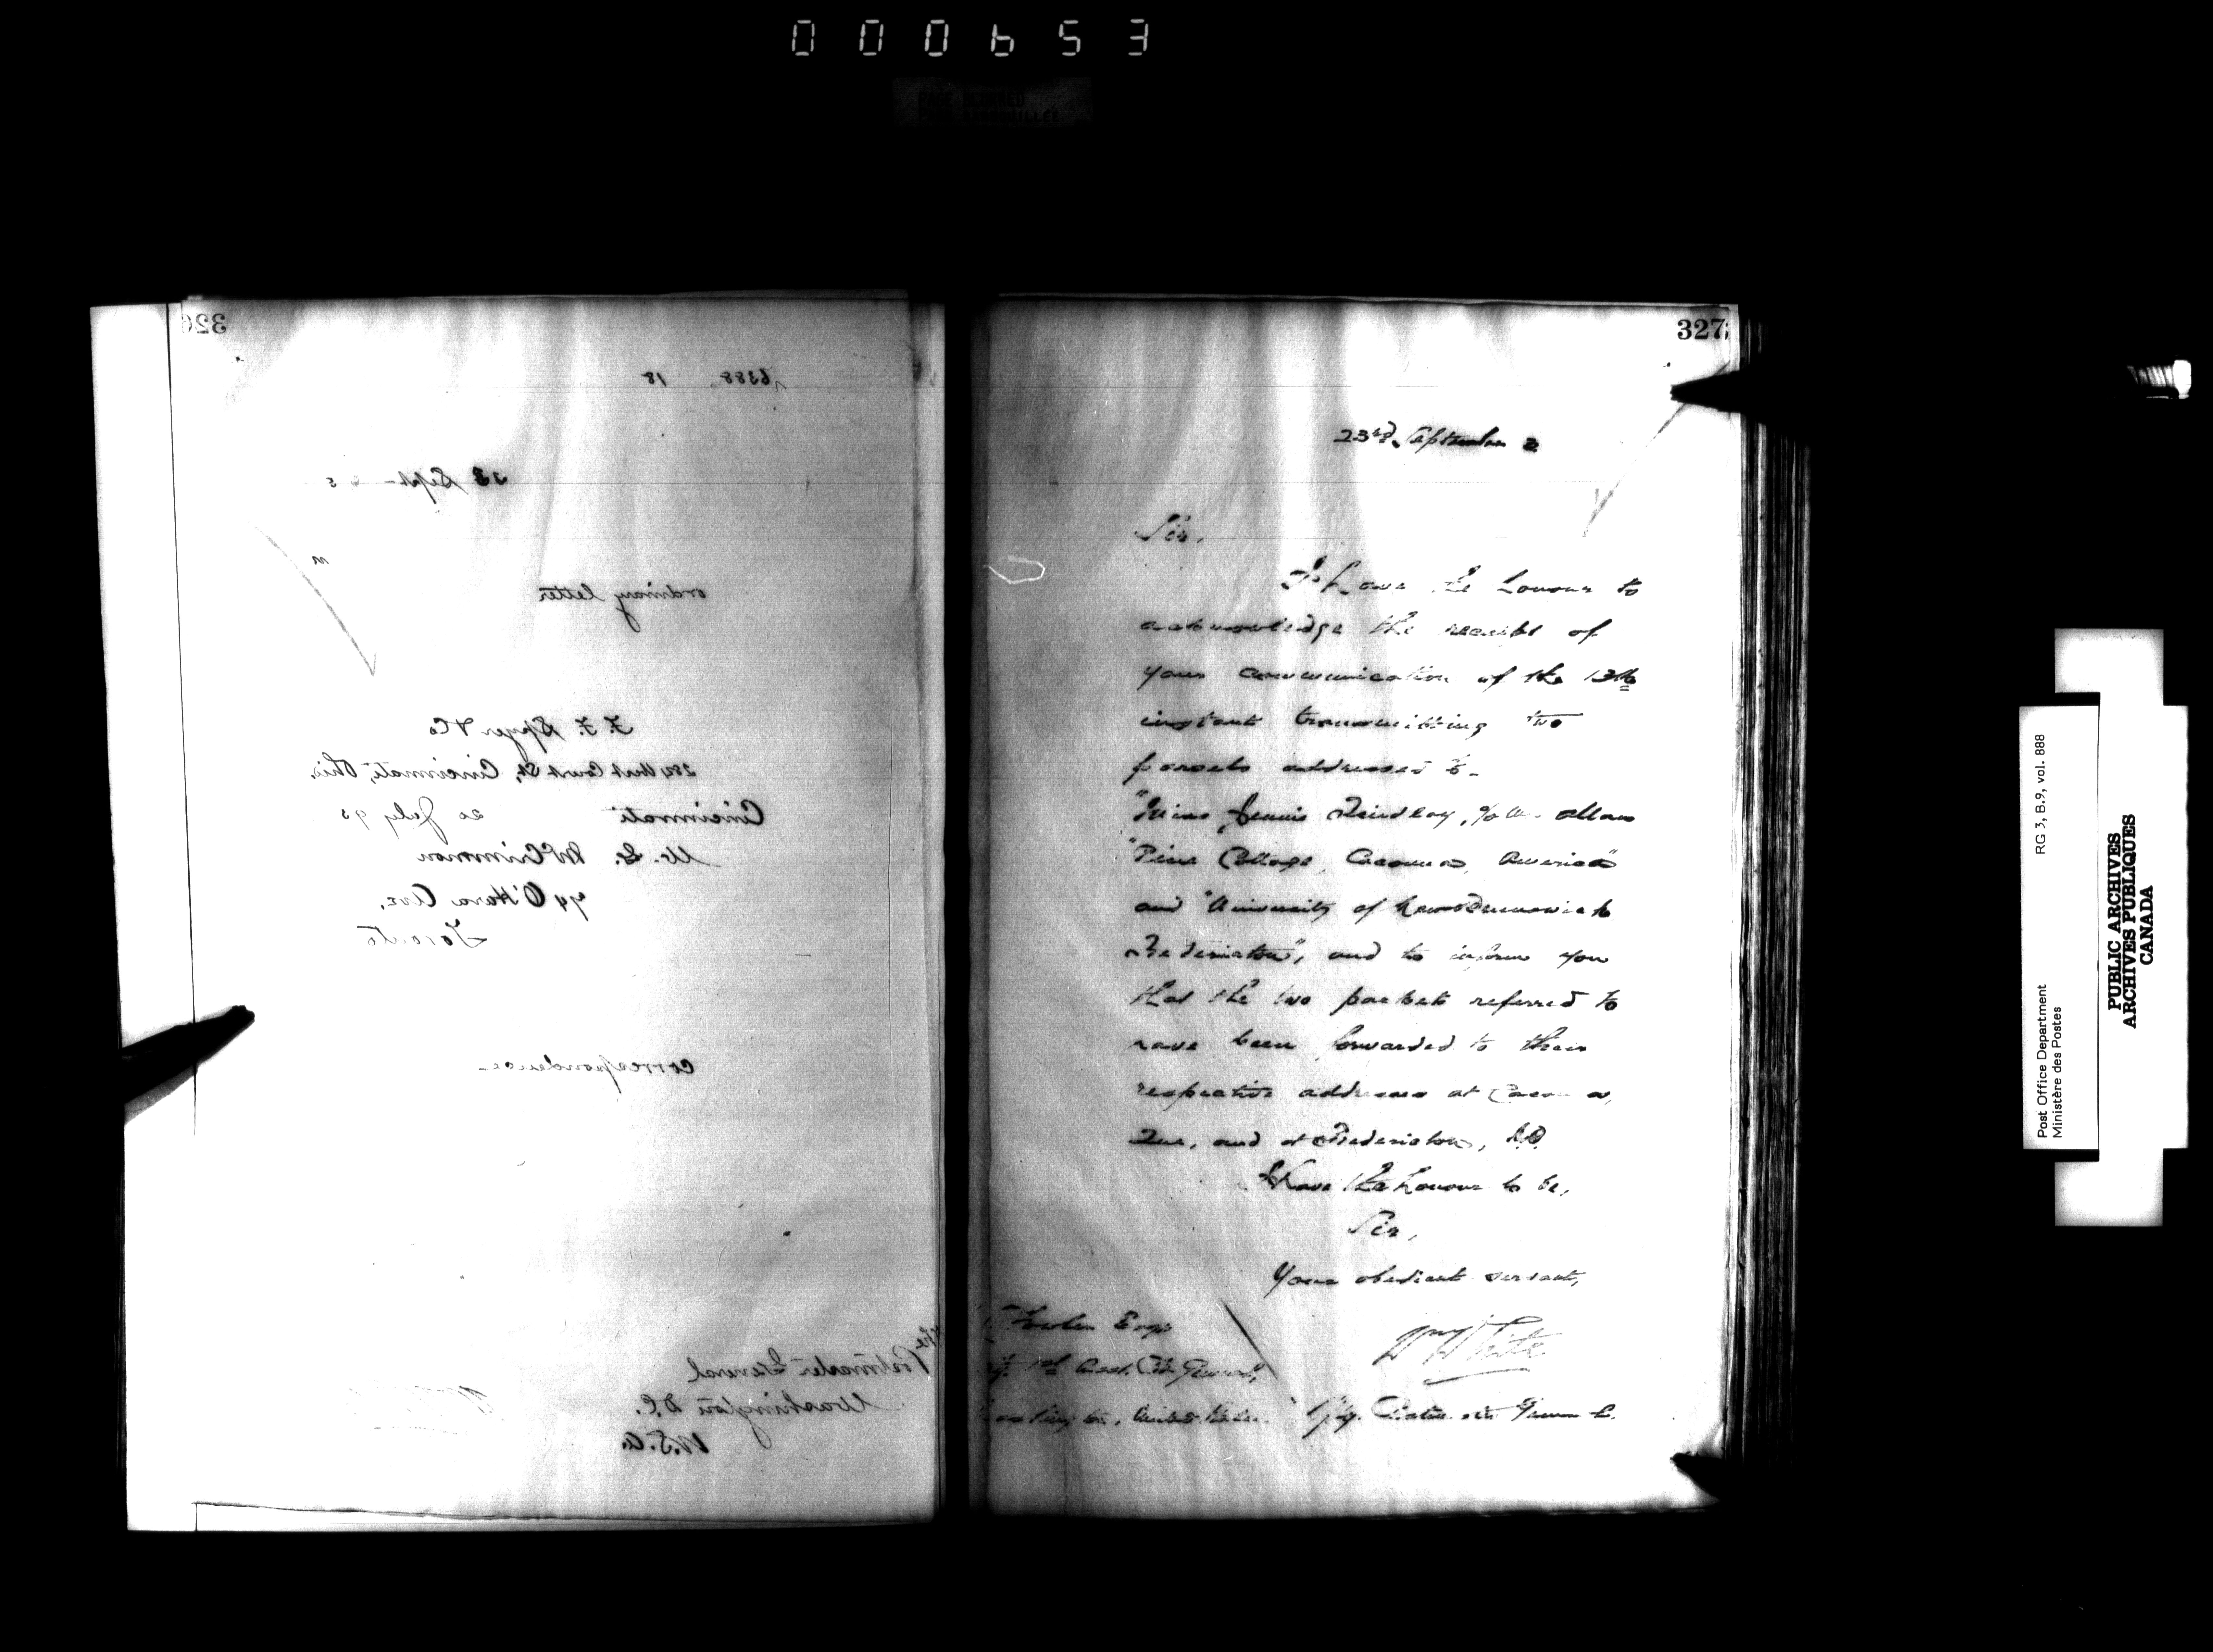 000653
326
6388 18
23 Sept
ordinary letter
F. F. Spyer & Co
280 West Court St, Cincinnati, Ohio.
Cincinnati 20 July 95
McCrimmon
74 O'Hara Ave.
Toronto
correspondence
The
Postmaster General
Washington D.C.
U.S.A.
327
23rd September
Sir,
I have the honour to
acknowledge the receipt of
your communication of the 13th
instant transmitting two
parcels addressed to-
"Miss Jennie Findlay, c/o Allan
"Pine Cottage, Cacouna, America"
and "University of New Brunswick
Fredericton", and to inform you
that the two packets referred to
have been forwarded to their
respective addresses at Cacouna,
Que, and at Fredericton, N.B.
I have the honour to be,
Sir,
Your obedient servant,
Wm White
Fowler Esq
1st Asst. P.M. General,
Washington, United States.
Dy. Postmaster General.
Post Office Department
Ministère des Postes
RG 3, B.9, vol. 888
PUBLIC ARCHIVES
ARCHIVES PUBLIQUES
CANADA